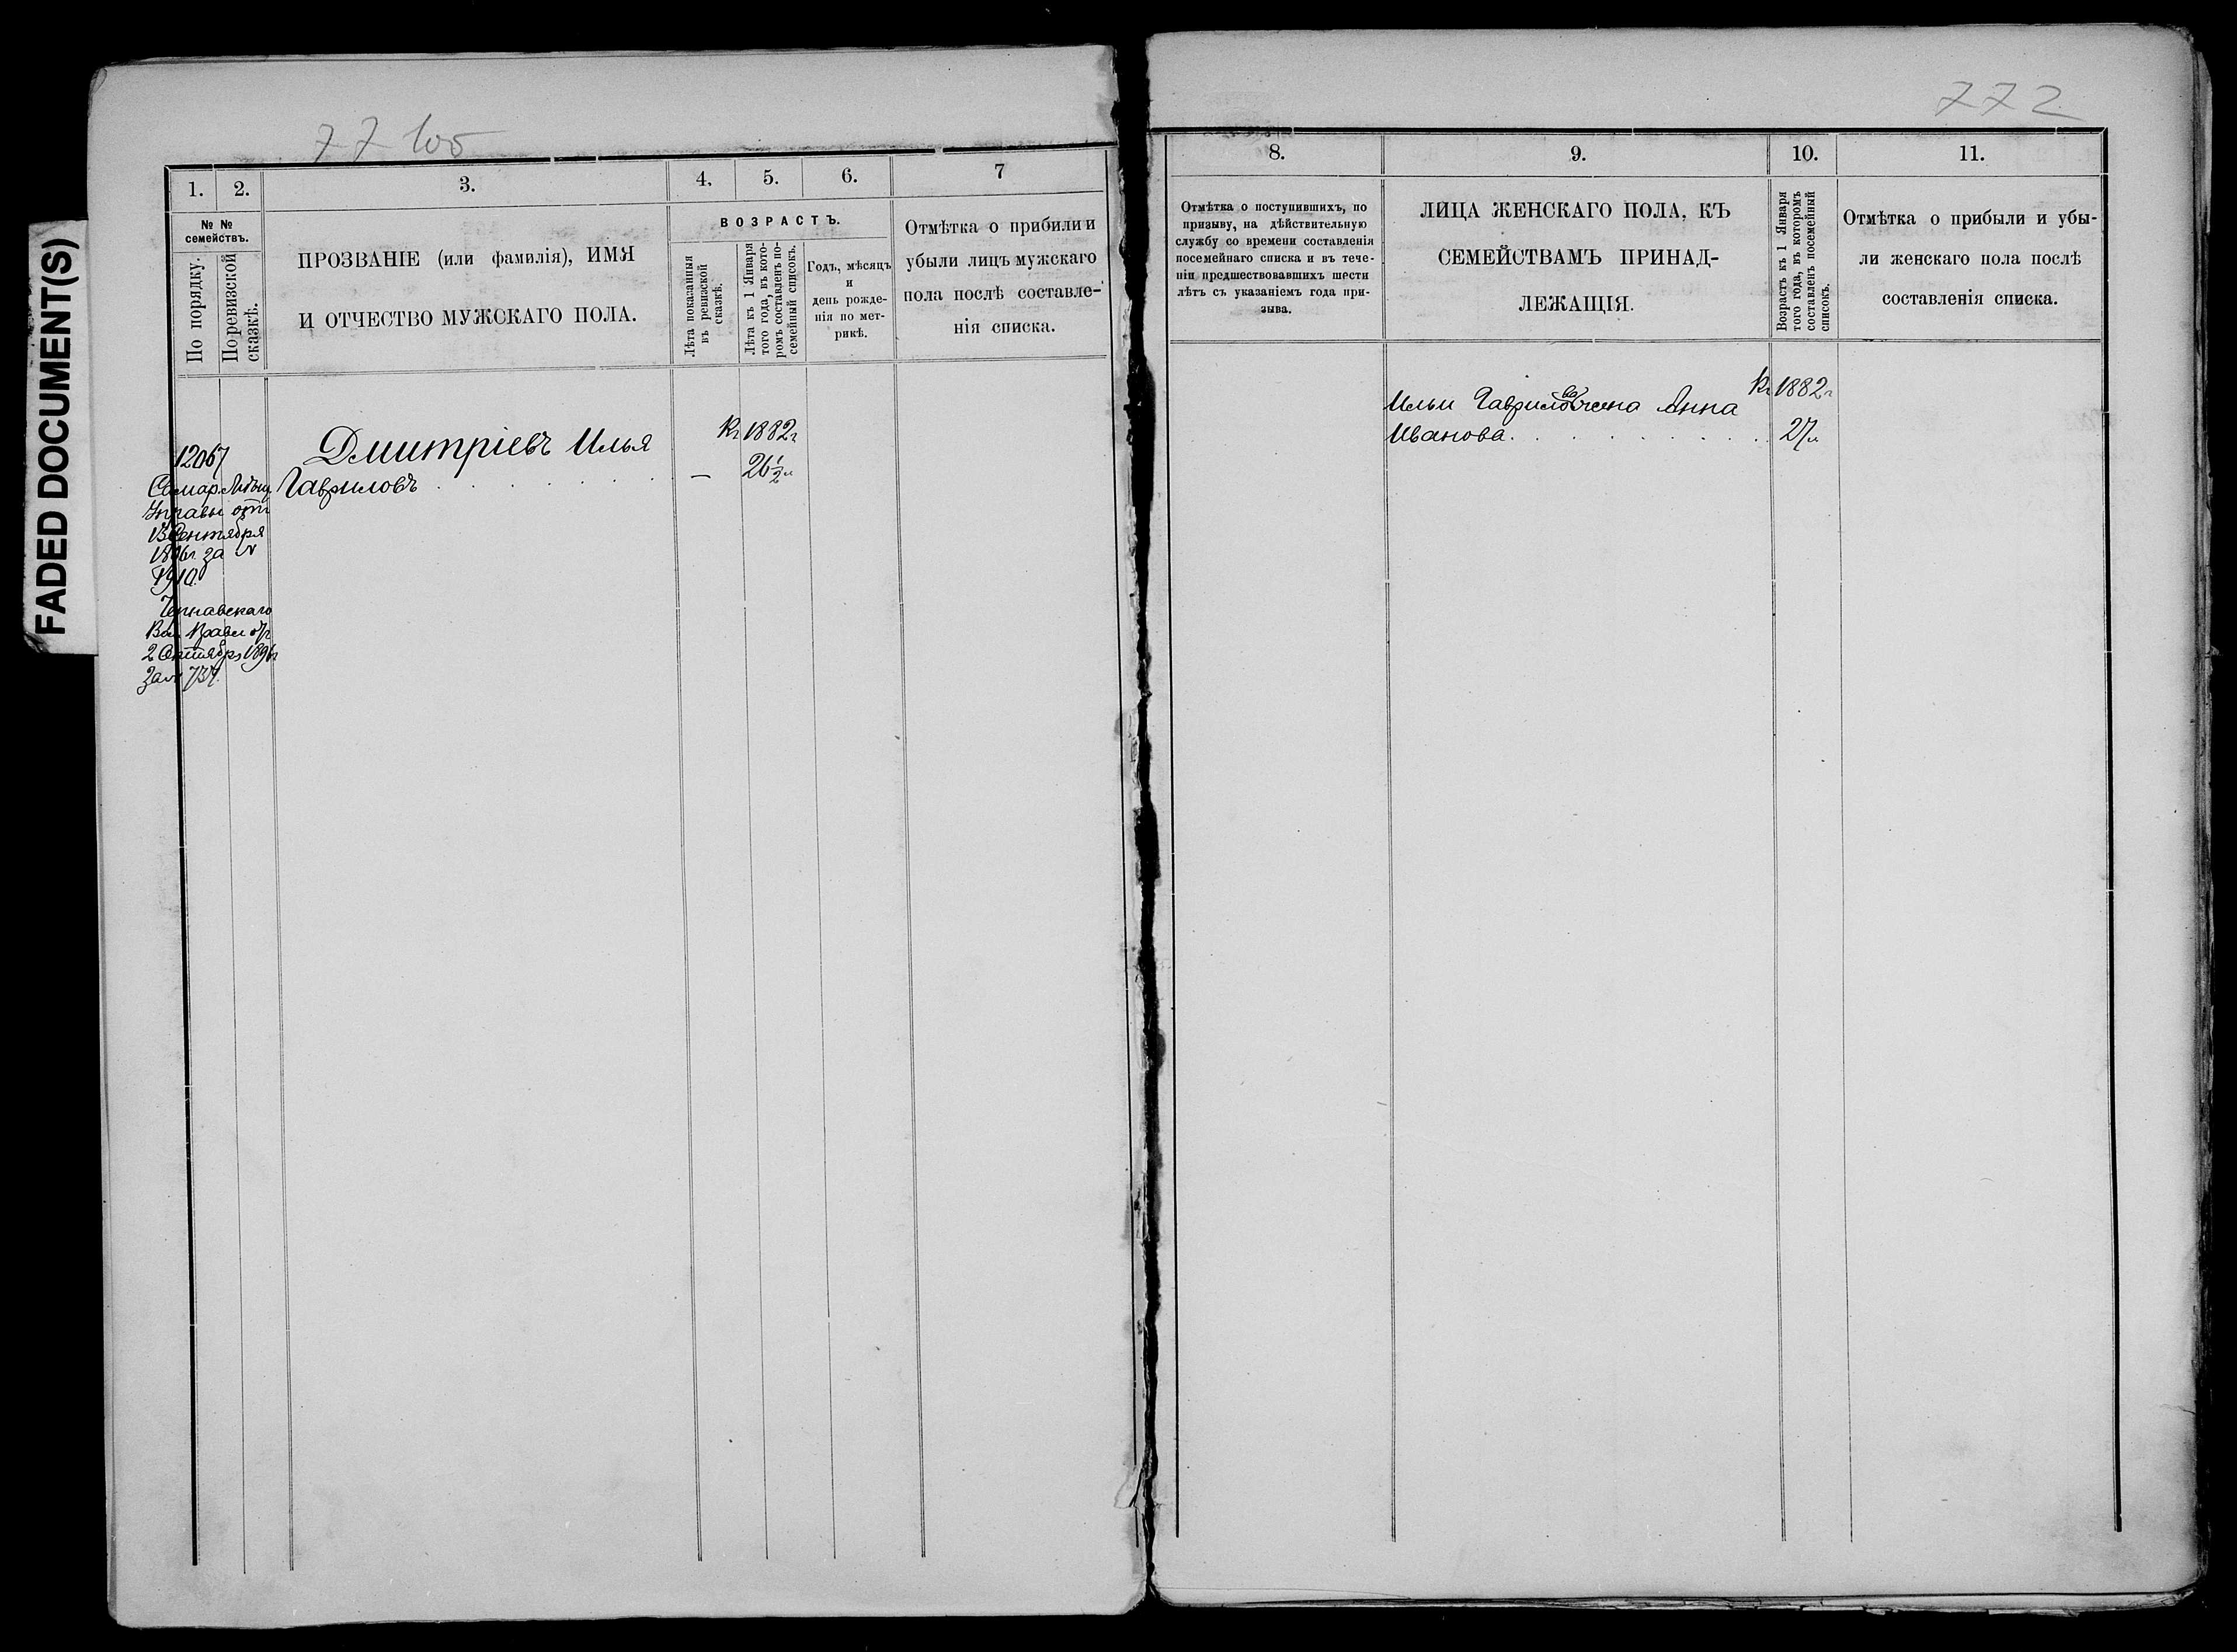 FADED DOCUMENT(S)
77 105
1.
2.
3.
4.
5.
6.
7
№ №
семействъ.
По порядку.
По ревизской
сказкѣ.
ПРОЗВАНІЕ (или фамилія), ИМЯ
И ОТЧЕСТВО МУЖСКАГО ПОЛА.
ВОЗРАСТЪ.
Лѣта показанныя
въ ревизской
сказкѣ.
Лѣта къ 1 Января
того года, въ кото-
ромъ составленъ по-
семейный списокъ.
Годъ, мѣсяцъ
и
день рожде-
нія по мет-
рикѣ.
Отмѣтка о прибили и
убыли лицъ мужскаго
пола послѣ составле-
нія списка.
Кг 1882г
12067 Дмитріевъ Илья
Гавриловъ — 26 1/2 л
Самар. Мѣщ
Управы отъ
13 Сентября
1896г. за №
7910.
Чернавскаго
Вол Правл отъ
2 Октября 1896г
за № 737.
772
8.
9.
10.
11.
Отмѣтка о поступившихъ, по
призыву, на дѣйствительную
службу со времени составленія
посемейнаго списка и въ тече-
ніи предшествовавшихъ шести
лѣтъ съ указаніемъ года при-
зыва.
ЛИЦА ЖЕНСКАГО ПОЛА, КЪ
СЕМЕЙСТВАМЪ ПРИНАД-
ЛЕЖАЩІЯ.
Возрастъ къ 1 Января
того года, въ которомъ
составленъ посемейный
списокъ.
Отмѣтка о прибыли и убы-
ли женскаго пола послѣ
составленія списка.
Кг 1882г
Ильи Гаврилова жена Анна
Иванова. 27л